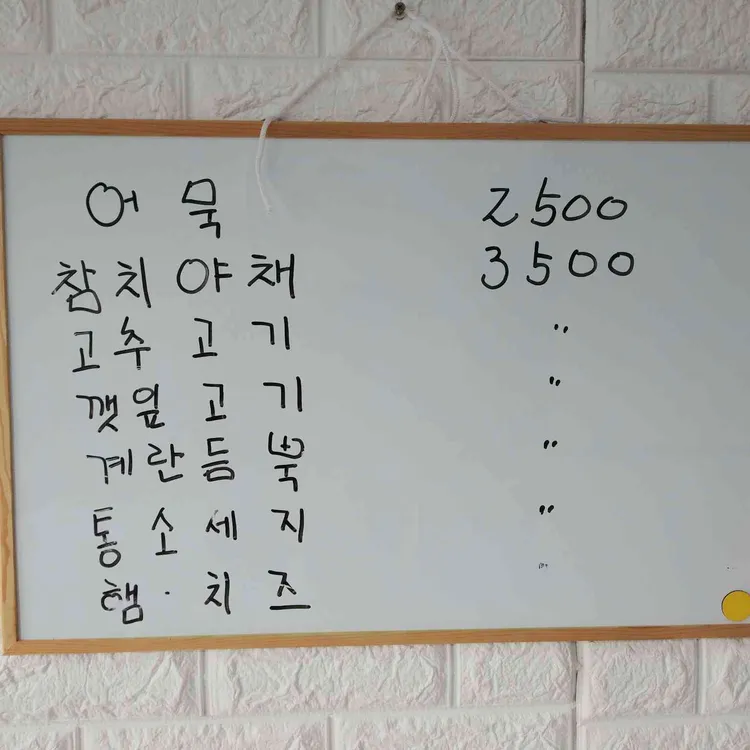 어묵 2500
참치야채 3500
고추고기 〃
깻잎고기 〃
계란듬북 〃
통소세지 〃
햄·치즈 〃